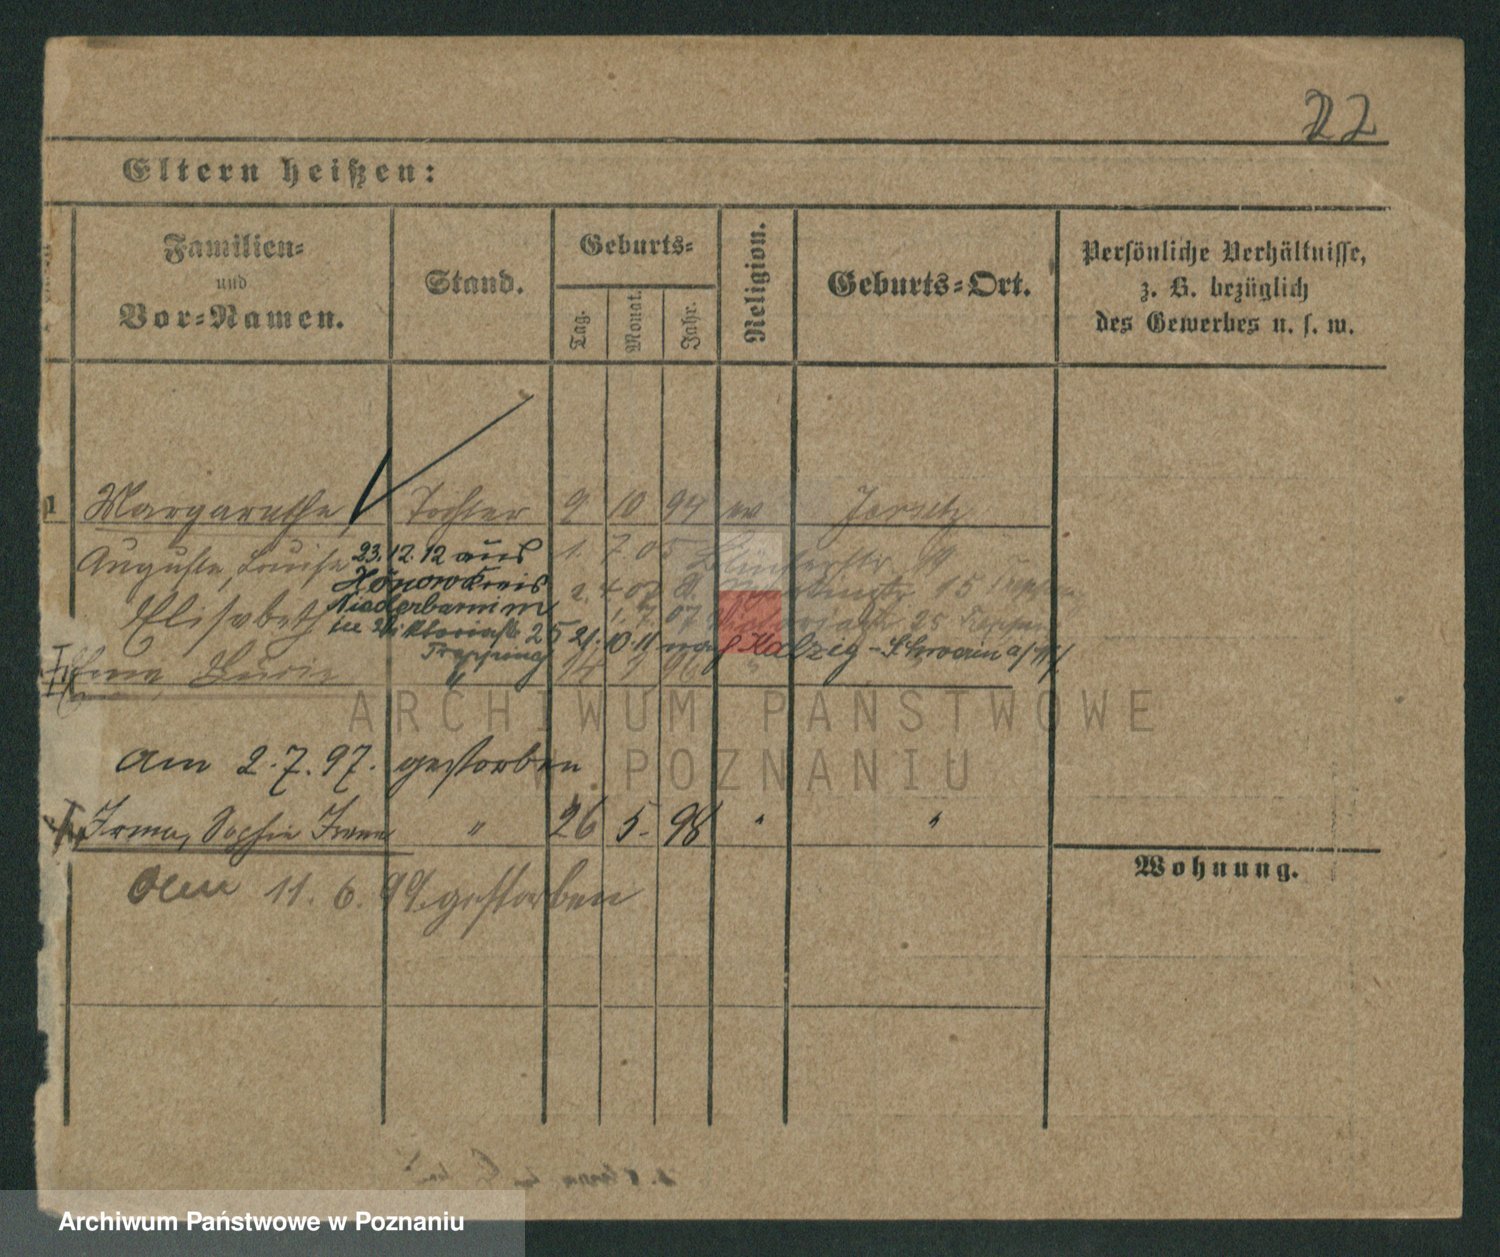 22
Eltern heißen:
Familien-
und
Vor-Namen.
Stand.
Geburts-
Tag.
Monat.
Jahr.
Religion.
Geburts-Ort.
Persönliche Verhältnisse,
z. B. bezüglich
des Gewerbes u. s. w.
Margarethe Tochter 9 10 94 ev Jersitz
Auguste, Louise 23.12.12 aus 1. 7. 05
Hönow Kreis
Elisabeth Niederbarnim 07
in Viktoriastr 25 21. 10. 11 nach Kalzig - Schwerin a/W
Trepping
" 96
am 2.7.97. gestorben
Irma, Sophie " 26 5. 98 " "
Am 11.6.99. gestorben
Wohnung.
ARCHIWUM PAŃSTWOWE
W POZNANIU
Archiwum Państwowe w Poznaniu